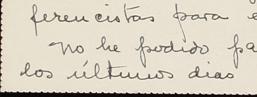 ferencistas para e
no he podido pa
los últimos dias